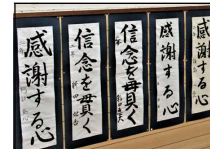 感謝する心
信念を貫く
信念を貫く
感謝する心
感謝する心